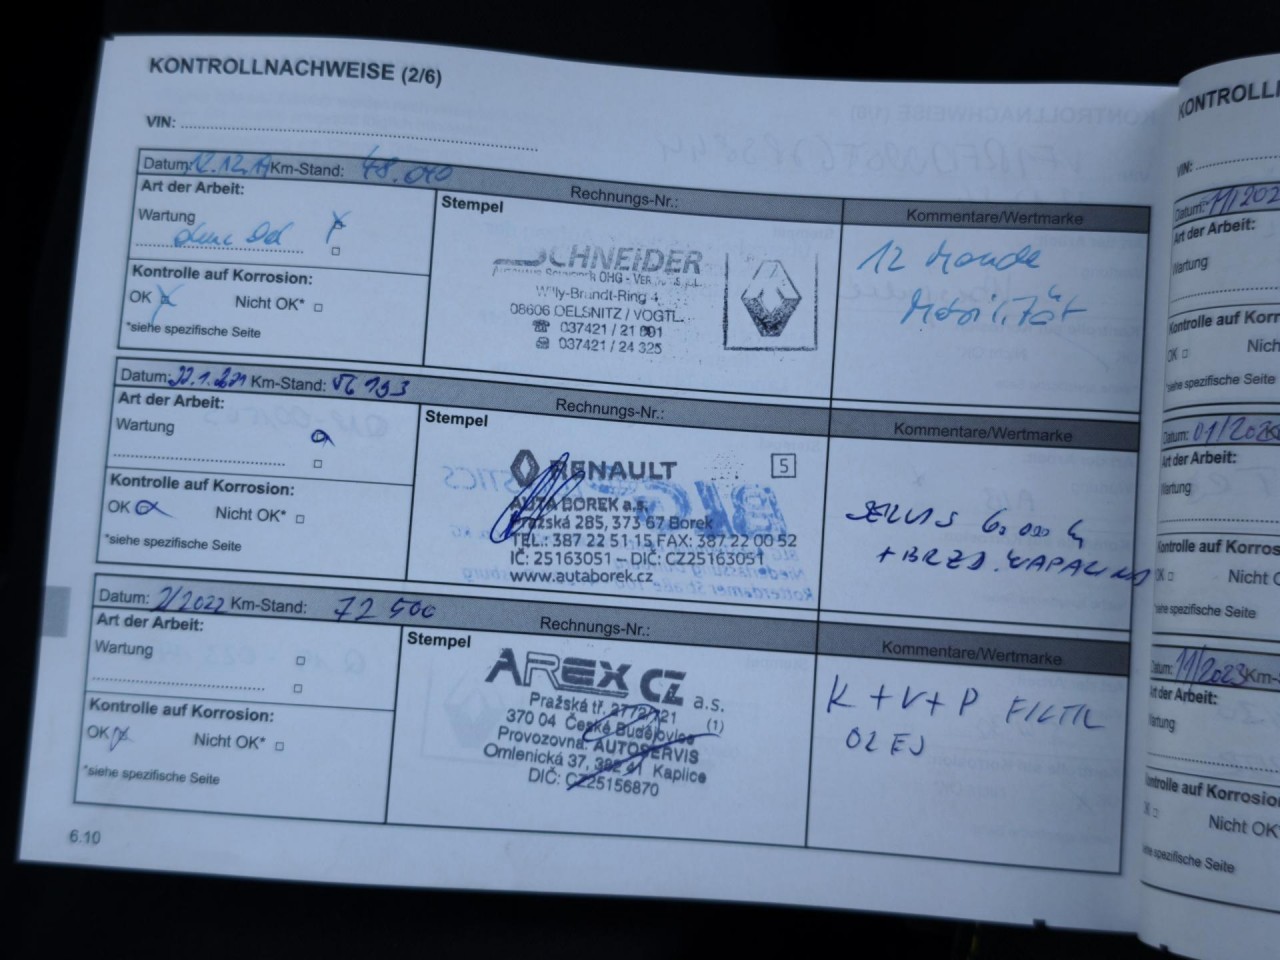 KONTROLLNACHWEISE (2/6)
VIN:
Datum: 12.12.19 Km-Stand: 48.010
Rechnungs-Nr.:
Art der Arbeit:
Wartung
Kontrolle auf Korrosion:
OK Nicht OK*
*siehe spezifische Seite
Stempel
SCHNEIDER
Willy-Brandt-Ring 4
08606 OELSNITZ / VOGTL.
037421 / 21 891
037421 / 24 325
Kommentare/Wertmarke
12 Monate
Mobilität
Datum: 22.1.2021 Km-Stand: 193
Rechnungs-Nr.:
Art der Arbeit:
Wartung
Kontrolle auf Korrosion:
OK Nicht OK*
*siehe spezifische Seite
Stempel
RENAULT
5
AUTA BOREK a.s.
Pražská 285, 373 67 Borek
TEL.: 387 22 51 15 FAX: 387 22 00 52
IČ: 25163051 – DIČ: CZ25163051
www.autaborek.cz
Kommentare/Wertmarke
SERVIS 60 000 km
+ BRZD. KAPALINA
Datum: 2/2022 Km-Stand: 72 500
Rechnungs-Nr.:
Art der Arbeit:
Wartung
Kontrolle auf Korrosion:
OK Nicht OK*
*siehe spezifische Seite
Stempel
AREX CZ a.s.
Pražská tř. 2772/121
370 04 České Budějovice (1)
Provozovna: AUTOSERVIS
Omlenická 37, 382 41 Kaplice
DIČ: CZ25156870
Kommentare/Wertmarke
K + V + P FILTR
OLEJ
6.10
KONTROLL
VIN:
Datum: 11/202
Art der Arbeit:
Wartung
Kontrolle auf Korros
OK Nich
*siehe spezifische Seite
Datum: 01/202
Art der Arbeit:
Wartung
Kontrolle auf Korros
Nicht O
siehe spezifische Seite
Datum: 11/2023 Km-S
Art der Arbeit:
Wartung
Kontrolle auf Korrosio
Nicht OK*
siehe spezifische Seite